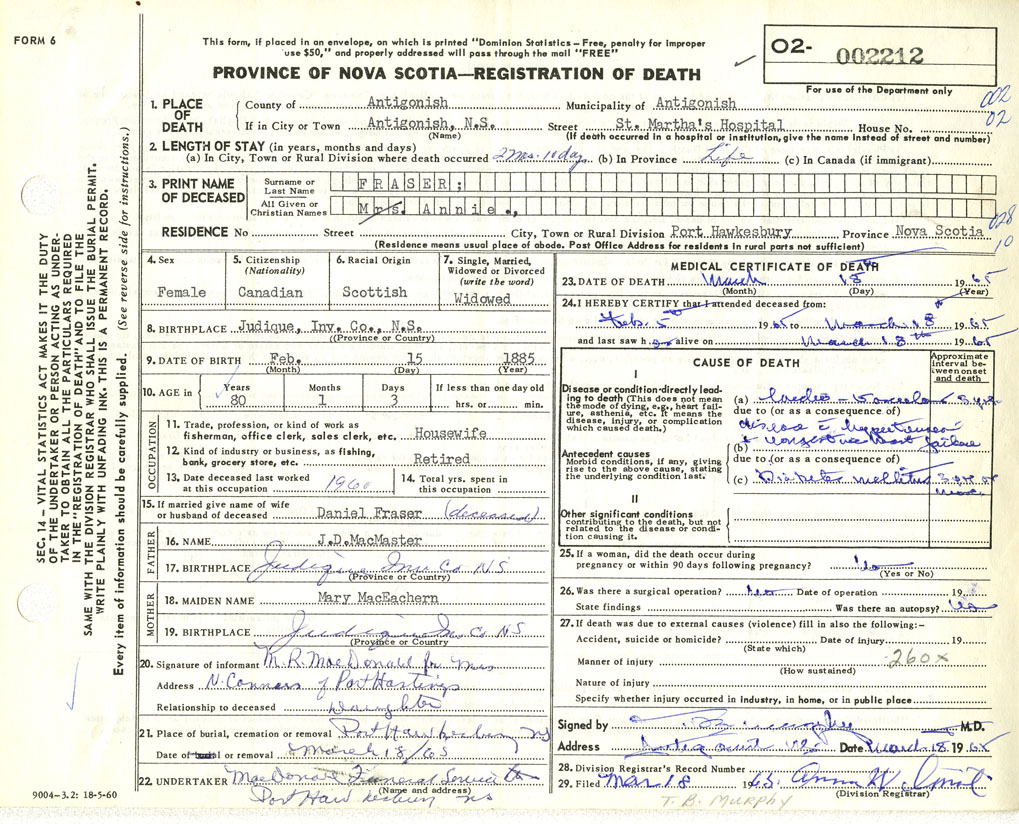 FORM 6
This form, if placed in an envelope, on which is printed "Dominion Statistics – Free, penalty for improper
use $50," and properly addressed will pass through the mail "FREE"
PROVINCE OF NOVA SCOTIA—REGISTRATION OF DEATH
O2- 002212
For use of the Department only
002
02
1. PLACE OF DEATH
County of Antigonish Municipality of Antigonish
If in City or Town Antigonish, N.S. Street St. Martha's Hospital House No.
(Name) (If death occurred in a hospital or institution, give the name instead of street and number)
2. LENGTH OF STAY (in years, months and days)
(a) In City, Town or Rural Division where death occurred 2 Ms. 10 day (b) In Province Life (c) In Canada (if immigrant)
3. PRINT NAME OF DECEASED
Surname or Last Name FRASER;
All Given or Christian Names Mrs. Annie.,
028
10
RESIDENCE No Street City, Town or Rural Division Port Hawkesbury Province Nova Scotia
(Residence means usual place of abode. Post Office Address for residents in rural parts not sufficient)
4. Sex Female
5. Citizenship (Nationality) Canadian
6. Racial Origin Scottish
7. Single, Married, Widowed or Divorced (write the word) Widowed
8. BIRTHPLACE Judique, Inv. Co., N.S.
(Province or Country)
9. DATE OF BIRTH Feb. 15 1885
(Month) (Day) (Year)
10. AGE in Years 80 Months 1 Days 3 If less than one day old hrs. or min.
OCCUPATION
11. Trade, profession, or kind of work as
fisherman, office clerk, sales clerk, etc. Housewife
12. Kind of industry or business, as fishing,
bank, grocery store, etc. Retired
13. Date deceased last worked
at this occupation 1960
14. Total yrs. spent in
this occupation
15. If married give name of wife
or husband of deceased Daniel Fraser (deceased)
FATHER
16. NAME J.D.MacMaster
17. BIRTHPLACE Judique Inv Co NS
(Province or Country)
MOTHER
18. MAIDEN NAME Mary MacEachern
19. BIRTHPLACE Judique In Co NS
(Province or Country)
20. Signature of informant M.R. MacDonald for Mrs
Address N. Conners of Port Hastings
Relationship to deceased Daughter
21. Place of burial, cremation or removal Port Hawkesbury NS
Date of burial or removal March 18/65
22. UNDERTAKER MacDonald Funeral Service
(Name and address)
Port Hawkesbury NS
MEDICAL CERTIFICATE OF DEATH
23. DATE OF DEATH March 18th 1965
(Month) (Day) (Year)
24. I HEREBY CERTIFY that I attended deceased from:
Feb. 5th 1965 to March 18th 1965
and last saw her alive on March 18th 1965
CAUSE OF DEATH
Approximate interval between onset and death
I
Disease or condition directly leading to death (This does not mean the mode of dying, e.g., heart failure, asthenia, etc. It means the disease, injury, or complication which caused death.)
(a) Cardio-Vascular 5 yrs
due to (or as a consequence of)
disease c hypertension
& congestive heart failure
(b)
Antecedent causes
Morbid conditions, if any, giving rise to the above cause, stating the underlying condition last.
due to (or as a consequence of)
(c) Diabetes mellitus 3 yrs or more
II
Other significant conditions
contributing to the death, but not related to the disease or condition causing it.
25. If a woman, did the death occur during
pregnancy or within 90 days following pregnancy? No
(Yes or No)
26. Was there a surgical operation? No Date of operation 19
State findings Was there an autopsy? No
27. If death was due to external causes (violence) fill in also the following:-
Accident, suicide or homicide? Date of injury 19
(State which)
Manner of injury 260x
(How sustained)
Nature of injury
Specify whether injury occurred in industry, in home, or in public place
Signed by M.D.
Address Antigonish NS Date March 18 1965
28. Division Registrar's Record Number
29. Filed Mar 18 1965
(Division Registrar)
T. B. MURPHY
SEC. 14 – VITAL STATISTICS ACT MAKES IT THE DUTY
OF THE UNDERTAKER OR PERSON ACTING AS UNDER-
TAKER TO OBTAIN ALL THE PARTICULARS REQUIRED
IN THE "REGISTRATION OF DEATH" AND TO FILE THE
SAME WITH THE DIVISION REGISTRAR WHO SHALL ISSUE THE BURIAL PERMIT.
WRITE PLAINLY WITH UNFADING INK. THIS IS A PERMANENT RECORD.
Every item of information should be carefully supplied. (See reverse side for instructions.)
9004-3.2: 18-5-60